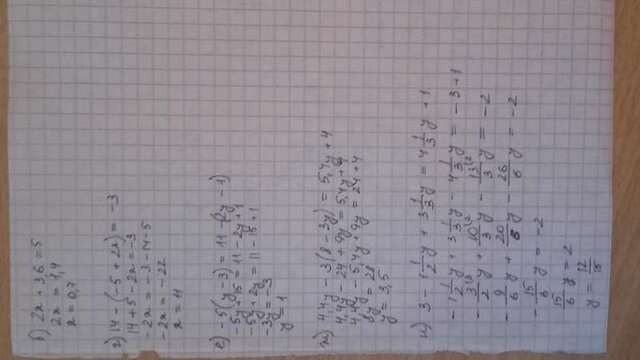 б) 2x + 3,6 = 5
2x = 1,4
x = 0,7
г) 14 - (-5 + 2x) = -3
14 + 5 - 2x = -3
-2x = -3 - 14 - 5
-2x = -22
x = 11
е) -5(y - 3) = 11 - (2y - 1)
-5y + 15 = 11 - 2y + 1
-5y + 2y = 11 - 15 + 1
-3y = -3
y = 1
ж) 4,4y - 3(8 - 3y) = 5,4y + 4
4,4y - 24 + 9y = 5,4y + 4
4,4y - 5,4y + 9y = 24 + 4
8y = 28
y = 3,5
и) 3 - 1 1/2 y + 3 1/3 y = 4 1/3 y + 1
- 1 1/2 y + 3 1/3 y - 4 1/3 y = -3 + 1
- 3/2 y + 10/3 y - 13/3 y = -2
- 9/6 y + 20/6 y - 26/6 y = -2
- 15/6 y = -2
15/6 y = 2
y = 12/15